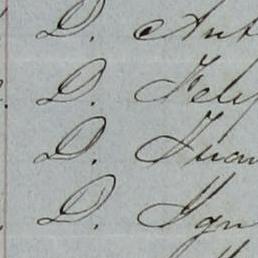 D. Ant
D. Feli
D. Juan
D. Ign